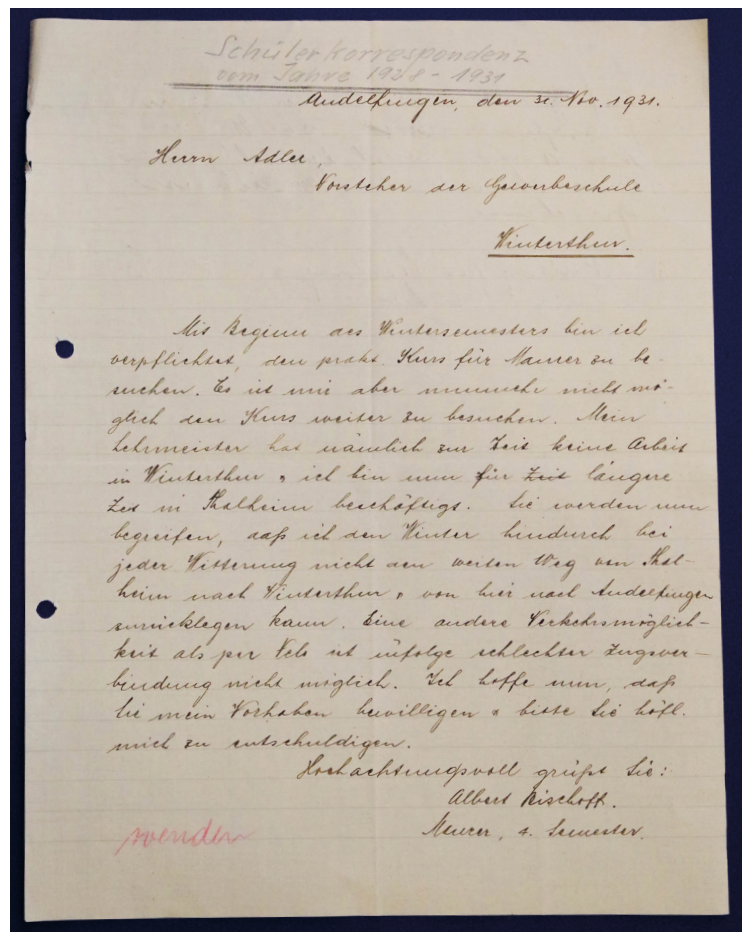 Schülerkorrespondenz
vom Jahre 1928 - 1931
Andelfingen, den 31. Nov. 1931.
Herrn Adler,
Vorsteher der Gewerbeschule
Winterthur.
Mit Beginn des Wintersemesters bin ich
verpflichtet, den prakt. Kurs für Maurer zu be-
suchen. Es ist mir aber nunmehr nicht mö-
glich den Kurs weiter zu besuchen. Mein
Lehrmeister hat nämlich zur Zeit keine Arbeit
in Winterthur u. ich bin nun für Zeit längere
Zeit in Thalheim beschäftigt. Sie werden nun
begreifen, daß ich den Winter hindurch bei
jeder Witterung nicht den weiten Weg von Thal-
heim nach Winterthur u. von hier nach Andelfingen
zurücklegen kann. Eine andere Verkehrsmöglich-
keit als per Velo ist infolge schlechter Zugsver-
bindung nicht möglich. Ich hoffe nun, daß
Sie mein Vorhaben bewilligen u. bitte Sie höfl.
mich zu entschuldigen.
Hochachtungsvoll grüßt Sie:
Albert Bischoff.
Maurer, 4. Semester.
wenden